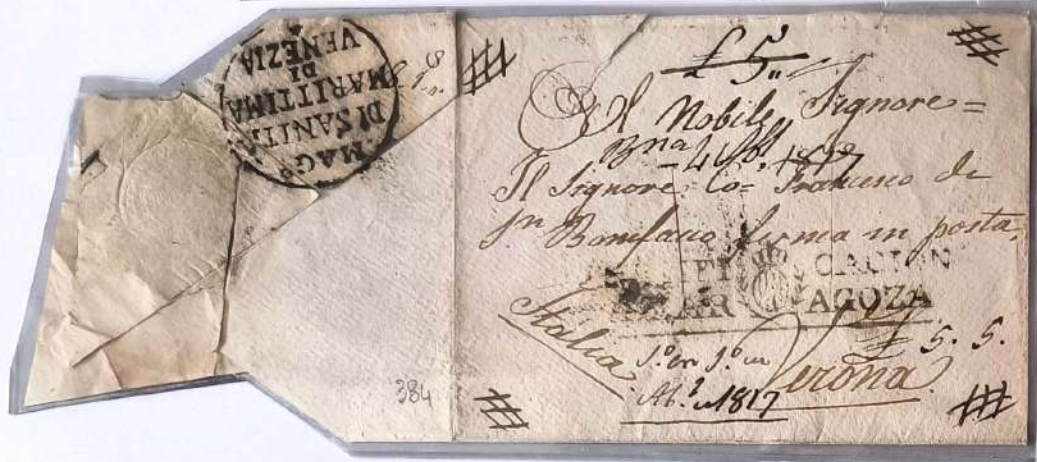 MAG.º
DI SANITÀ
MARITTIMA
DI
VENEZIA
£ 5"
Al Nobile Signore =
Bna 4 1817
Il Signore Co= Francesco de
Sn Bonifacio ferma in posta.
CACION
AR AGOZA
Italia
£ 5. 5.
Verona
1817
384